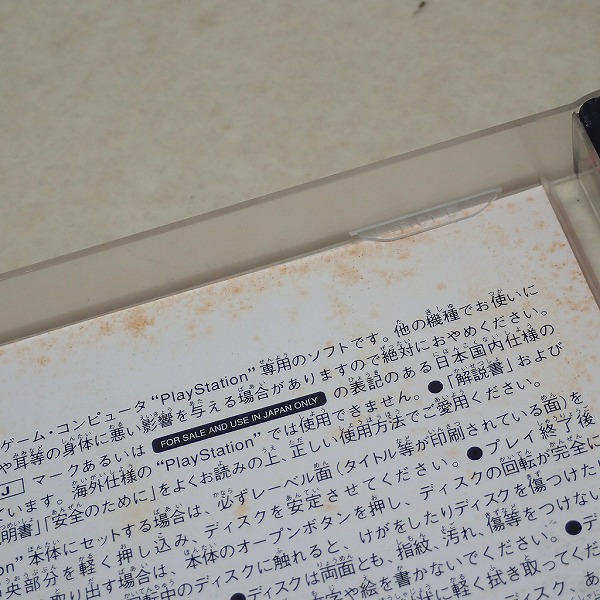 ゲーム・コンピュータ“PlayStation”専用のソフトです。他の機種でお使いに
や耳等の身体に悪い影響を与える場合がありますので絶対におやめください。
J マークあるいは FOR SALE AND USE IN JAPAN ONLY の表記のある日本国内仕様の
います。海外仕様の“PlayStation”では使用できません。●「解説書」および
明書」「安全のために」をよくお読みの上、正しい使用方法でご愛用ください。
本体にセットする場合は、必ずレーベル面(タイトル等が印刷されている面)を
央部分を軽く押し込み、ディスクを安定させてください。●プレイ終了後
取り出す場合は、本体のオープンボタンを押し、ディスクの回転が完全に
転中のディスクに触れると、けがをしたりディスクを傷つけたり
●ディスクは両面とも、指紋、汚れ、傷等をつけない
字や絵を書かないでください。●デ
状に軽く拭き取ってくだ